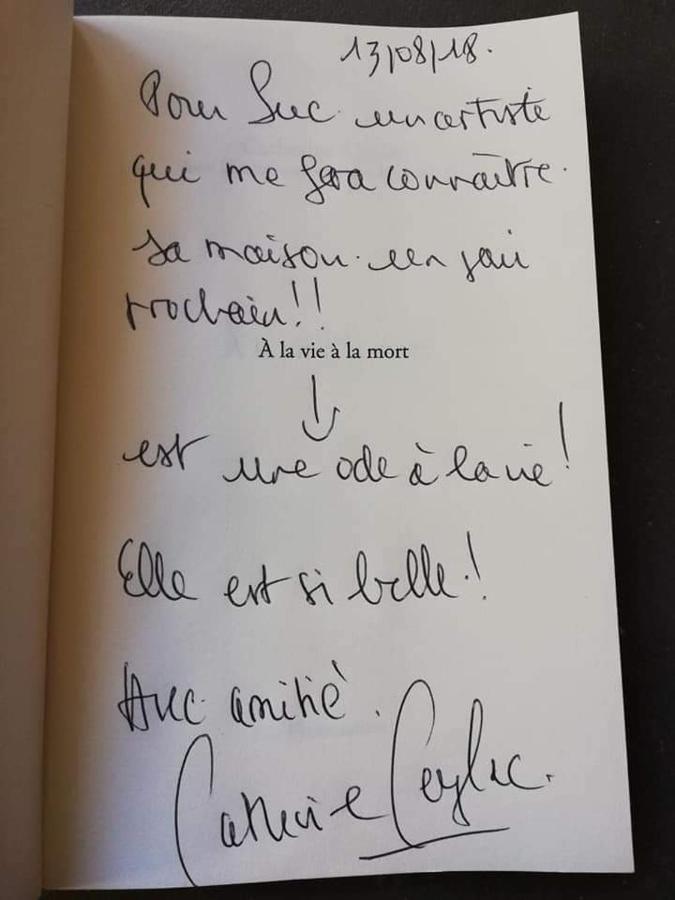 13/08/18.
Pour Luc un artiste
qui me fera connaître
sa maison un jour
prochain!!
À la vie à la mort
est une ode à la vie!
Elle est si belle!
Avec amitié.
Catherine Ceylac.